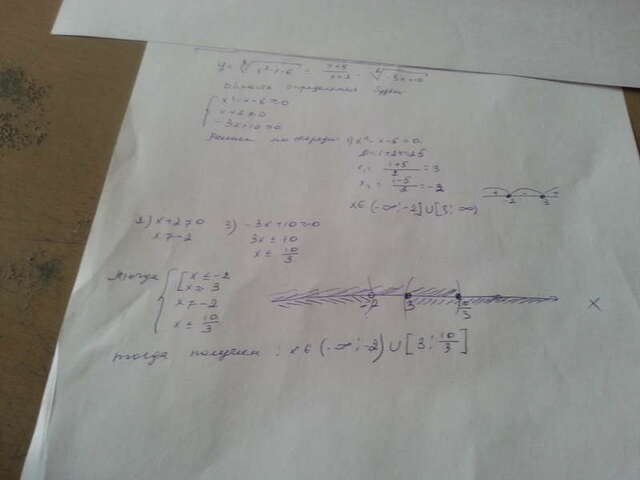 Область определения будет
x²-x-6≥0
x+2≠0
-3x+10≥0
Решаем по очереди: 1) x²-x-6=0
D=1+24=25
x₁ = (1+5)/2 = 3
x₂ = (1-5)/2 = -2
x∈(-∞;-2]∪[3;∞)
2) x+2≠0 3) -3x+10≥0
x≠-2 3x≤10
x ≤ 10/3
Итогда
x≤-2
x≥3
x≠-2
x≤10/3
-2 3 10/3 x
тогда получим: x∈(-∞;-2)∪[3;10/3]